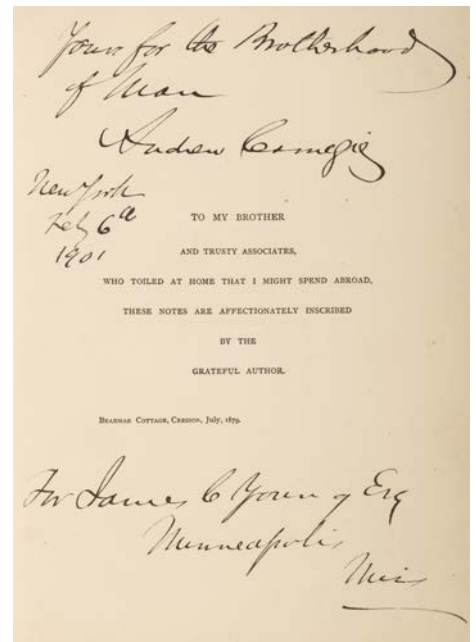 Yours for the Brotherhood
of Man
Andrew Carnegie
New York
Feby 6th
1901
TO MY BROTHER
AND TRUSTY ASSOCIATES,
WHO TOILED AT HOME THAT I MIGHT SPEND ABROAD,
THESE NOTES ARE AFFECTIONATELY INSCRIBED
BY THE
GRATEFUL AUTHOR.
BRAEMAR COTTAGE, CRESSON, July, 1879.
For James C Young Esq
Minneapolis